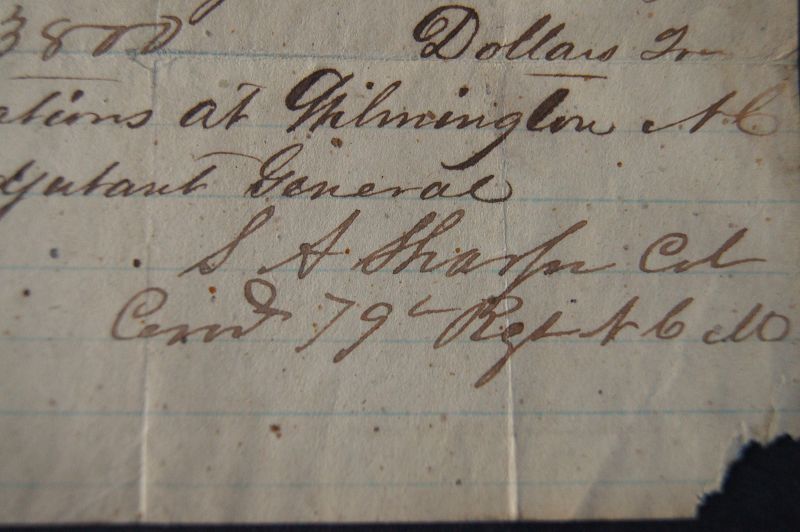 3800 Dollars
ations at Wilmington N C
djutant General
S A Sharpe Col
Comd 79th Regt N C M